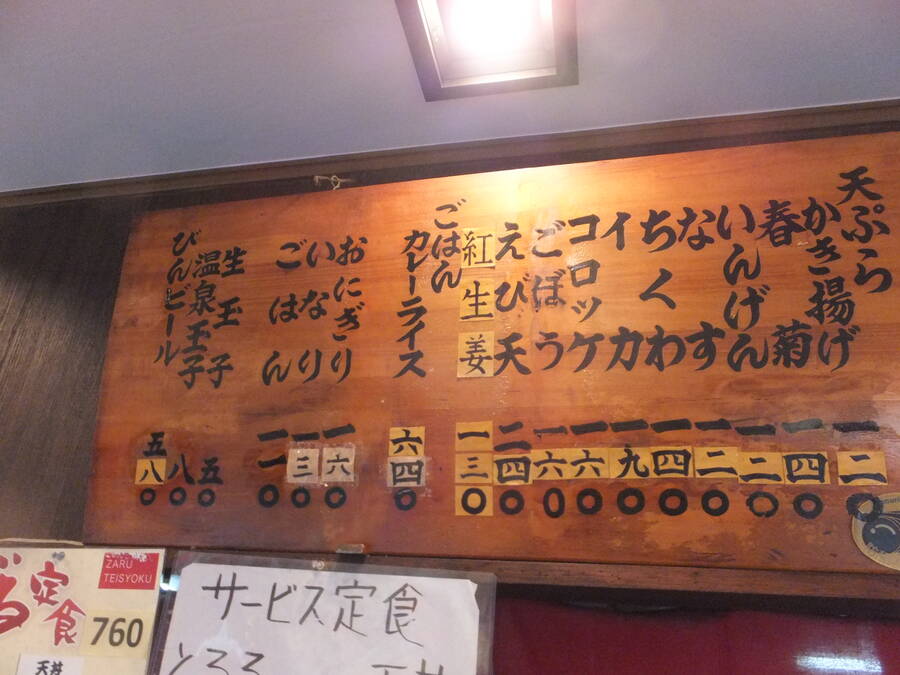 天ぷら
かき揚げ 一二〇
春菊 一四〇
いんげん 一二〇
なす 一二〇
ちくわ 一四〇
イカ 一九〇
コロッケ 一六〇
ごぼう 一六〇
えび天 二四〇
紅生姜 一三〇
ごはん
カレーライス 六四〇
おにぎり 一六〇
いなり 一三〇
ごはん 一一〇
生玉子 五〇
温泉玉子 八〇
びんビール 五八〇
ざる定食
ZARU
TEISYOKU
760
天丼
サービス定食
とろろ